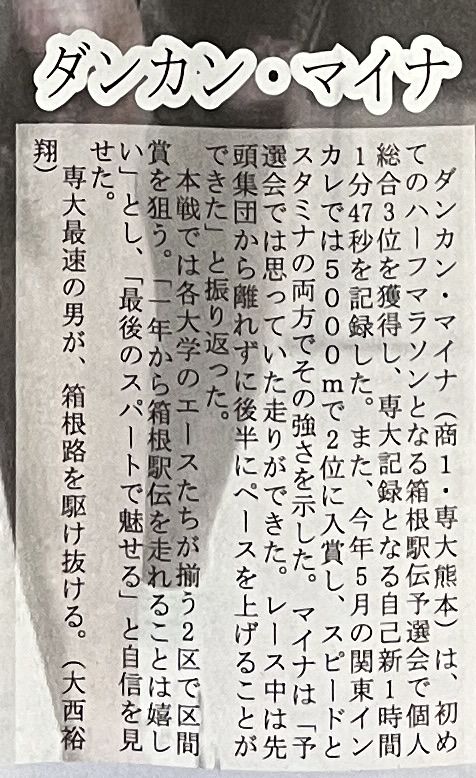 ダンカン・マイナ
ダンカン・マイナ（商1・専大熊本）は、初め
てのハーフマラソンとなる箱根駅伝予選会で個人
総合3位を獲得し、専大記録となる自己新1時間
1分47秒を記録した。また、今年5月の関東イン
カレでは5000mで2位に入賞し、スピードと
スタミナの両方でその強さを示した。マイナは「予
選会では思っていた走りができた。レース中は先
頭集団から離れずに後半にペースを上げることが
できた」と振り返った。
本戦では各大学のエースたちが揃う2区で区間
賞を狙う。「一年から箱根駅伝を走れることは嬉し
い」とし、「最後のスパートで魅せる」と自信を見
せた。
専大最速の男が、箱根路を駆け抜ける。（大西裕
翔）